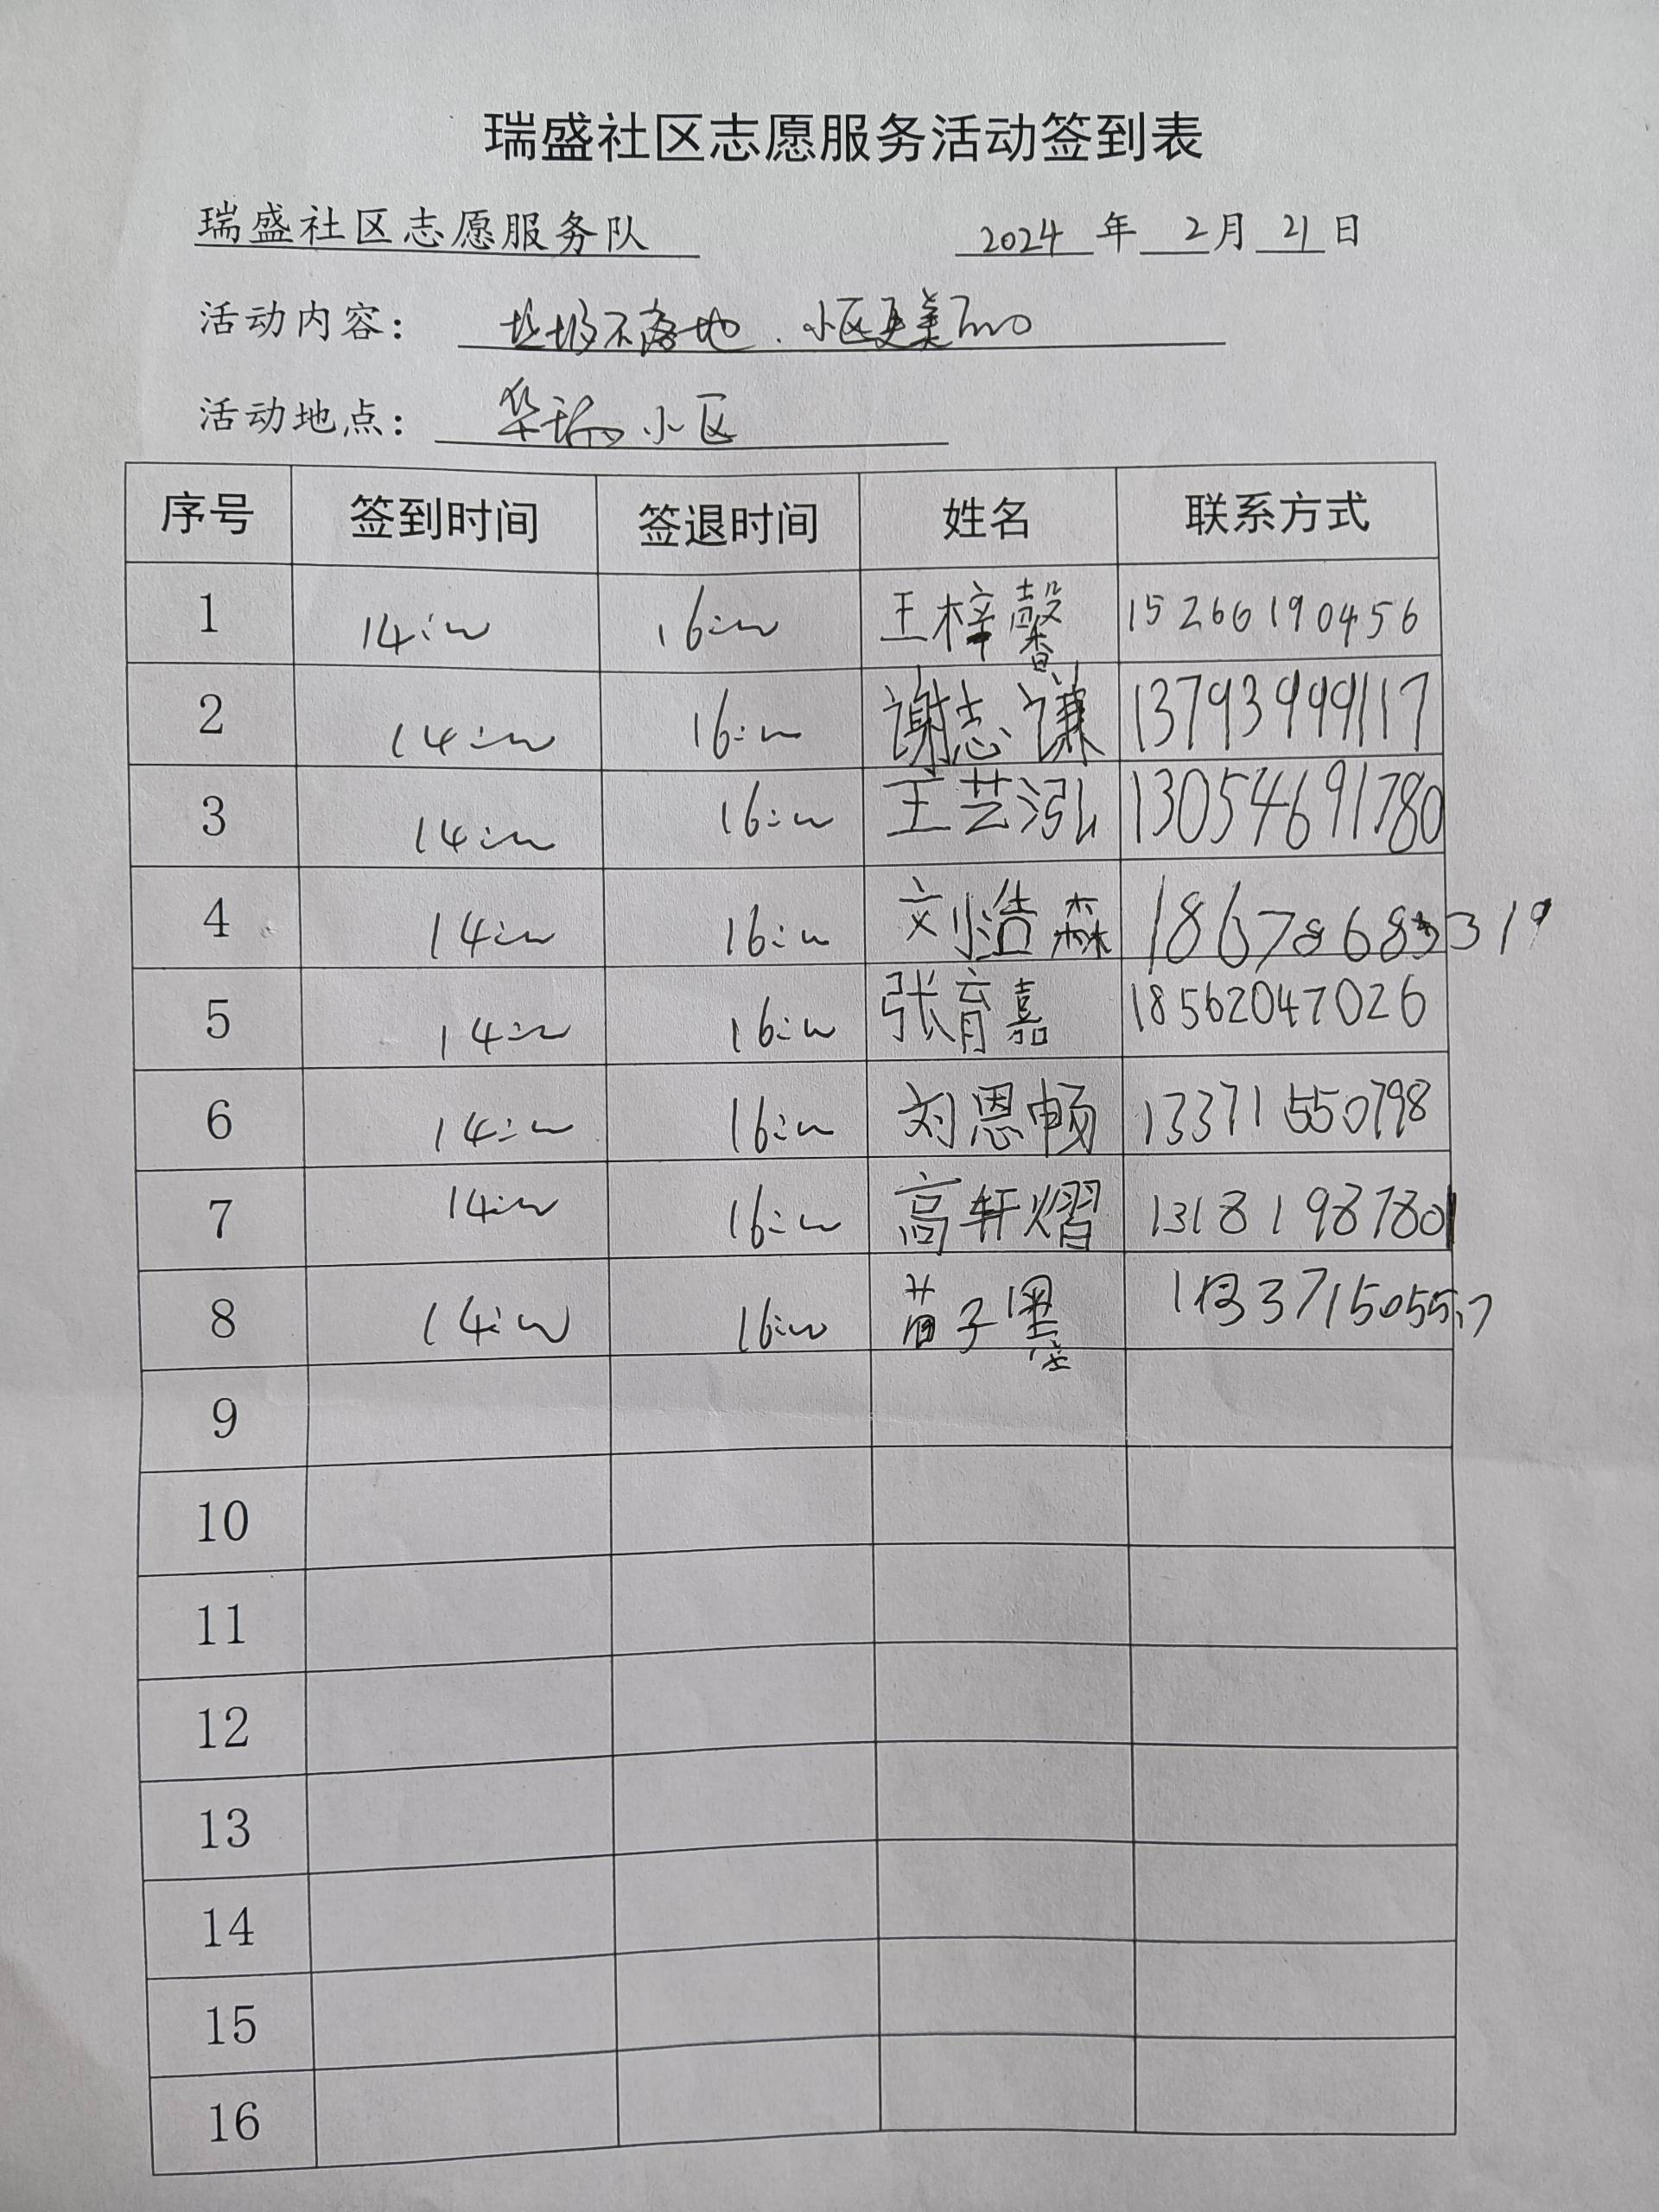 瑞盛社区志愿服务活动签到表
瑞盛社区志愿服务队 2024 年 2 月 21 日
活动内容： 垃圾不落地．小区更美丽
活动地点： 华瑞小区
序号 签到时间 签退时间 姓名 联系方式
1 14:00 16:00 王梓馨 15266190456
2 14:00 16:00 谢志谦 13793999117
3 14:00 16:00 王艺泓 13054691780
4 14:00 16:00 刘浩森
5 14:00 16:00 张育嘉 18562047026
6 14:00 16:00 刘恩畅 13371550798
7 14:00 16:00 高轩熠 13181987801
8 14:00 16:00 苗子墨
9
10
11
12
13
14
15
16